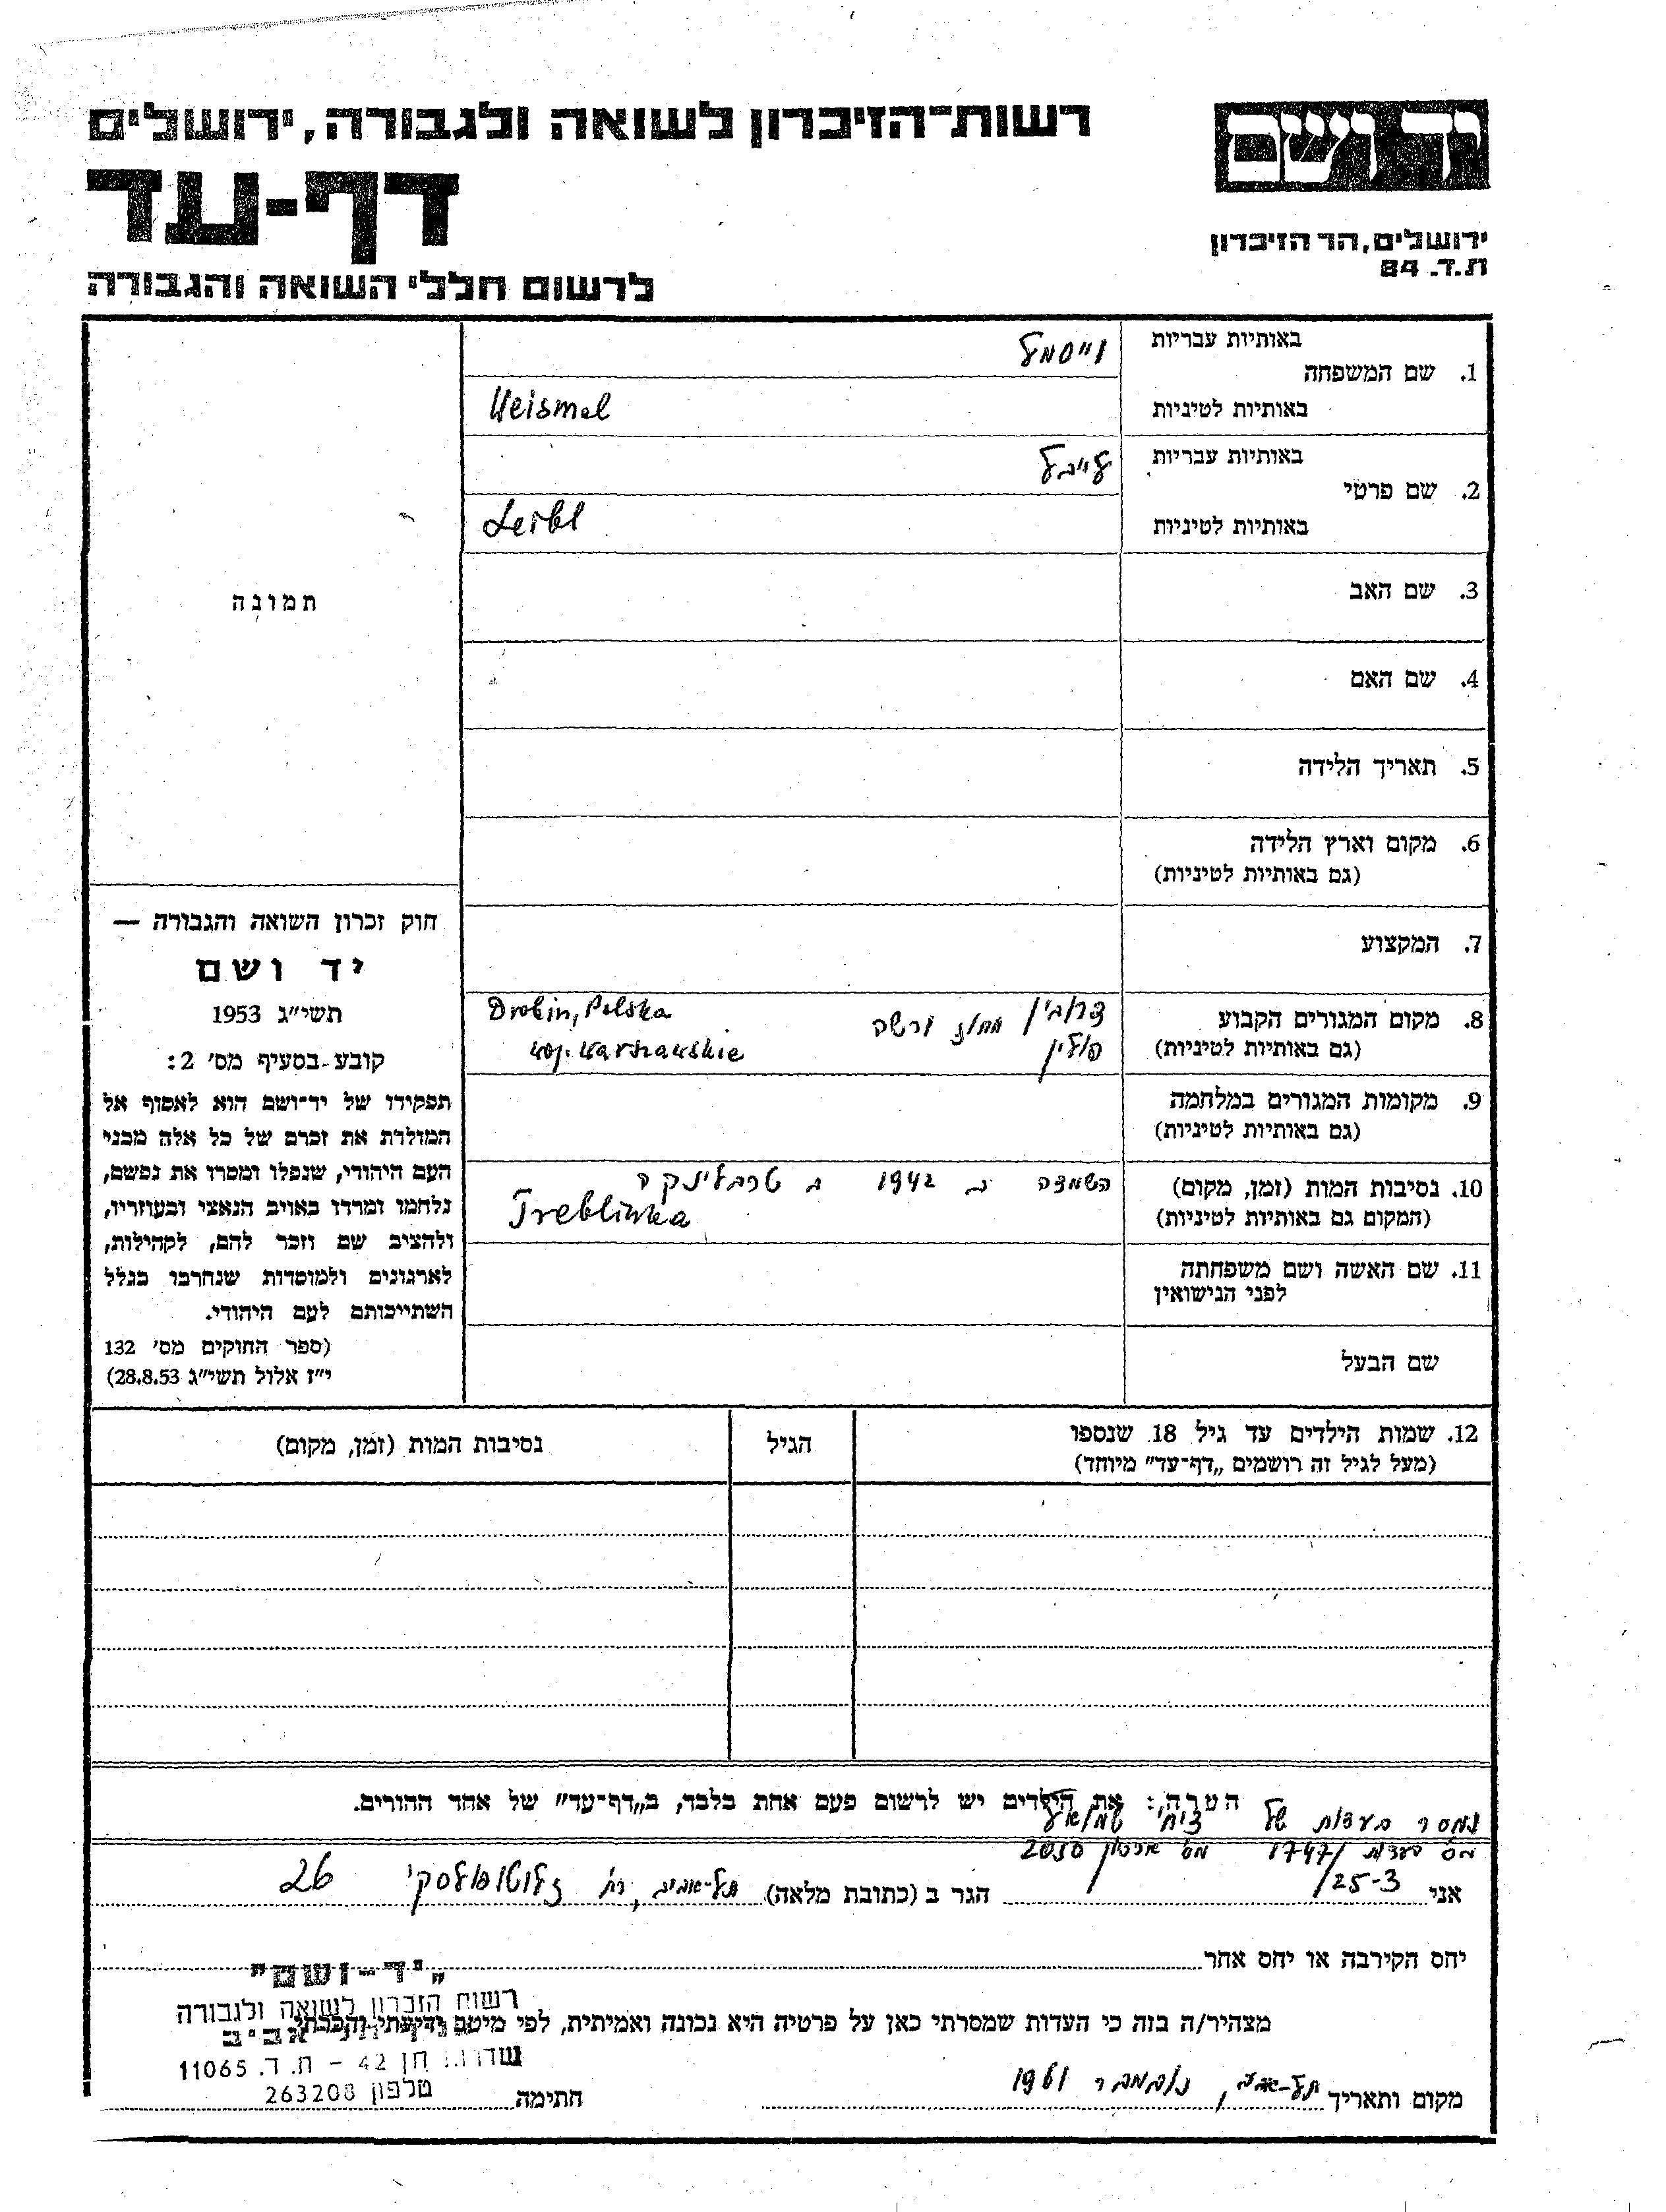 יד ושם
רשות־הזיכרון לשואה ולגבורה, ירושלים
דף-עד
ירושלים, הר הזיכרון
ת.ד. 84
לרשום חללי השואה והגבורה
באותיות עבריות
וייסמל
1. שם המשפחה
באותיות לטיניות
Weismel
באותיות עבריות
לייבל
2. שם פרטי
באותיות לטיניות
Leibl
3. שם האב
4. שם האם
5. תאריך הלידה
6. מקום וארץ הלידה
(גם באותיות לטיניות)
7. המקצוע
8. מקום המגורים הקבוע
(גם באותיות לטיניות)
דרובין מחוז ורשה
פולין
Drobin, Polska
woj. Warszawskie
9. מקומות המגורים במלחמה
(גם באותיות לטיניות)
10. נסיבות המות (זמן, מקום)
(המקום גם באותיות לטיניות)
השמדה ב 1942 ב טרבלינקה
Treblinka
11. שם האשה ושם משפחתה
לפני הנישואין
שם הבעל
תמונה
חוק זכרון השואה והגבורה —
יד ושם
תשי״ג 1953
קובע בסעיף מס׳ 2:
תפקידו של יד־ושם הוא לאסוף אל
המולדת את זכרם של כל אלה מבני
העם היהודי, שנפלו ומסרו את נפשם,
נלחמו ומרדו באויב הנאצי ובעוזריו,
ולהציב שם וזכר להם, לקהילות,
לארגונים ולמוסדות שנחרבו בגלל
השתייכותם לעם היהודי.
(ספר החוקים מס׳ 132
י״ז אלול תשי״ג 28.8.53)
12. שמות הילדים עד גיל 18 שנספו
(מעל לגיל זה רושמים „דף־עד״ מיוחד)
הגיל
נסיבות המות (זמן, מקום)
הערה: את הילדים יש לרשום פעם אחת בלבד, ב„דף־עד״ של אחד ההורים.
נמסר בעדות של שמואל
מס העדות 1747/ מס ארכיון 2050/
25-3
אני
הגר ב (כתובת מלאה) תל-אביב, רח זלוטופולסקי 26
יחס הקירבה או יחס אחר
מצהיר/ה בזה כי העדות שמסרתי כאן על פרטיה היא נכונה ואמיתית, לפי מיטב ידיעתי והכרתי.
„יד-ושם"
רשות הזכרון לשואה ולגבורה
תל אביב
שדרות חן 42 - ת.ד. 11065
טלפון 263208
מקום ותאריך תל-אביב, נובמבר 1961
חתימה